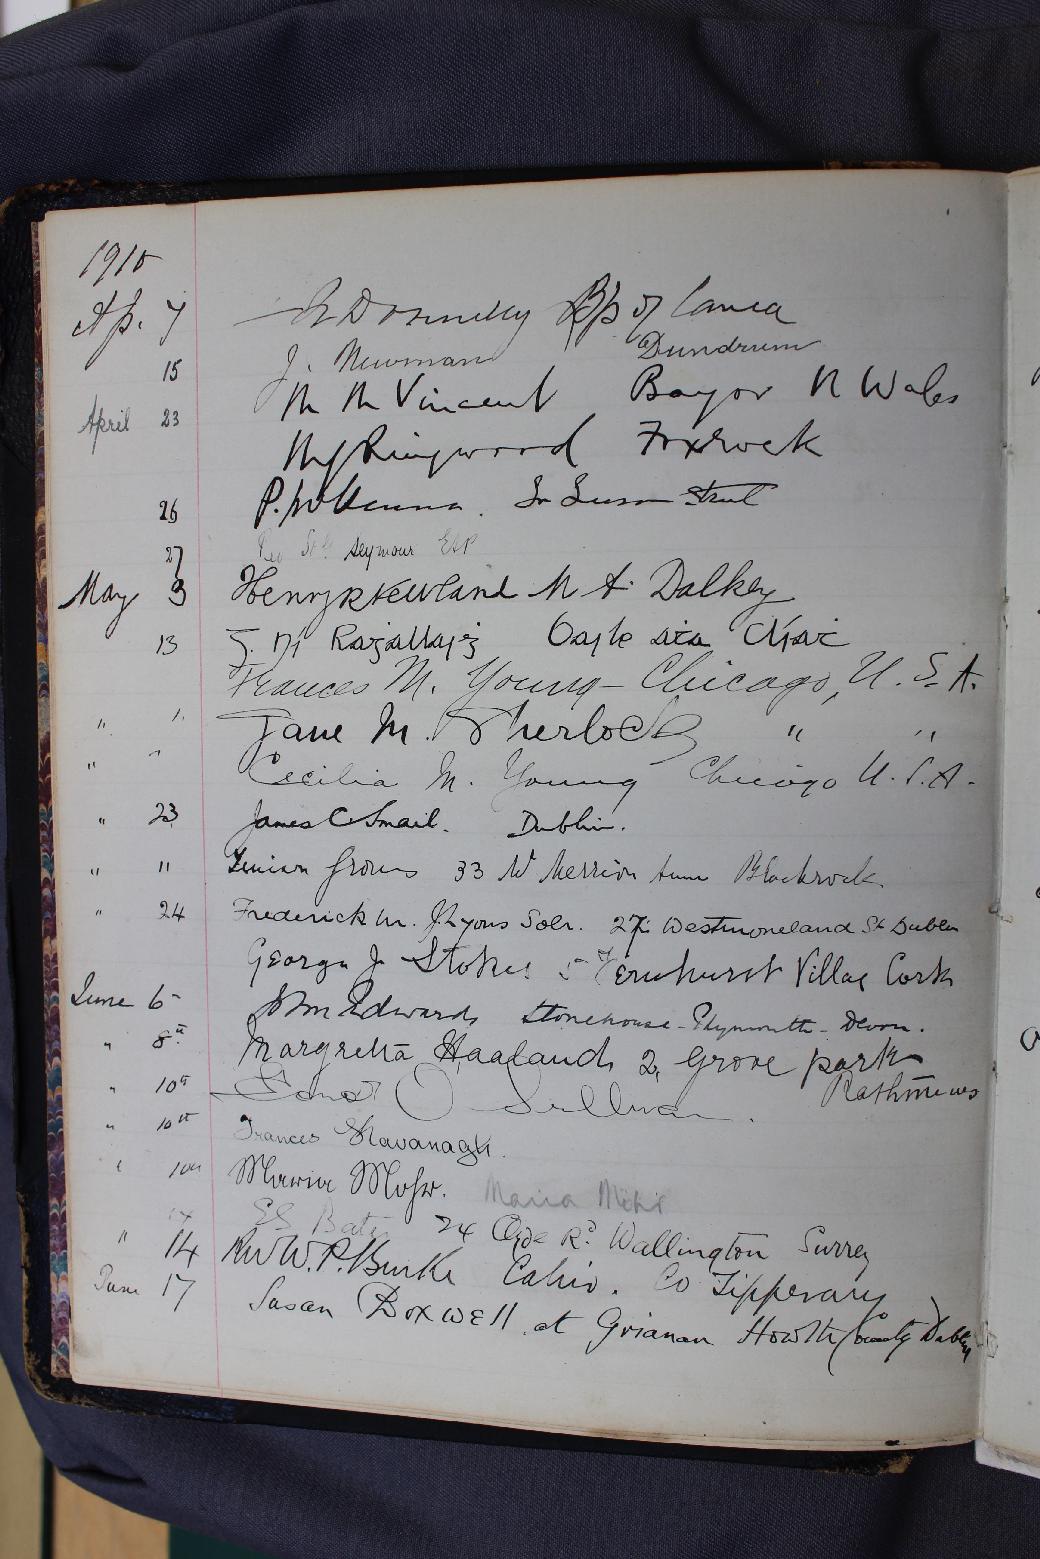 1910
Ap. 7 N Donnelly Bp of Canea
15 J. Newman Dundrum
M M Vincent Bangor N Wales
April 23 Ringwood Foxrock
26 P. McKenna
27 Seymour
May 3 Henry R Kewland M A. Dalkey
13
Frances M. Young - Chicago, U. S. A.
" " Jane M. Sherlock " "
" " Cecilia M. Young Chicago U.S.A.
" 23 James C Smail. Dublin.
" " 33 Merrion Blackrock
" 24 Frederick W. Lyons Solr. 27 Westmoreland St Dublin
George J Stokes 5 Fernhurst Villas Cork
June 6 John Edwards Stonehouse - Plymouth - Devon.
" 8th Margretta Haaland 2, Grove park
Rathmines
" 10th O Sullivan.
" 10th Frances Kavanagh.
" 10th Maria Mohr. Maria Mohr
Bate 24 Clyde Rd Wallington Surrey
" 14 Rev W. P. Burke Cahir. Co Tipperary
June 17 Susan Boxwell at Grianan Howth County Dublin